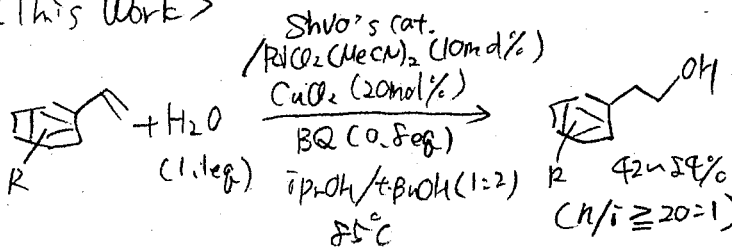 <This Work>
Shvo's cat.
/PdCl2(MeCN)2 (10mol%)
CuCl2 (20mol%)
+ H2O
(1.1eq)
BQ (0.8eq)
iPrOH/t-BuOH (1:2)
85°C
R
OH
R
42~84%
(n/i ≧ 20:1)